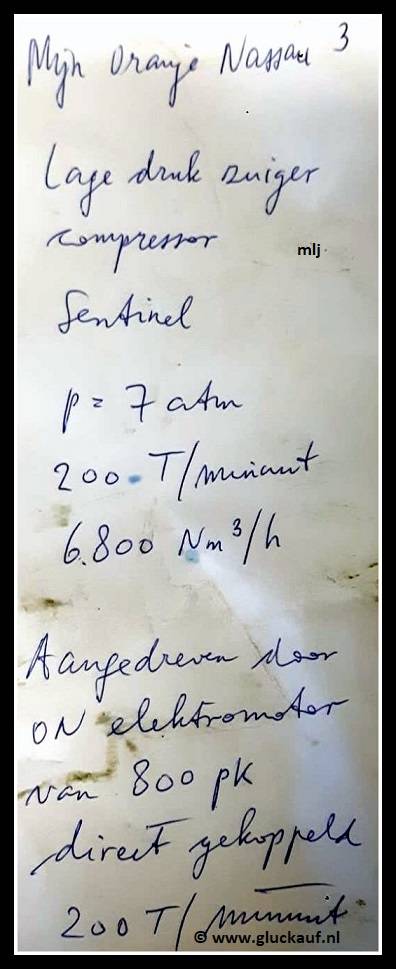 Mijn Oranje Nassau 3
Lage druk zuiger
compressor
mlj
Sentinel
p = 7 atm
200 T/minuut
6.800 Nm³/h
Aangedreven door
ON elektromotor
van 800 pk
direct gekoppeld
200 T/minuut
© www.gluckauf.nl